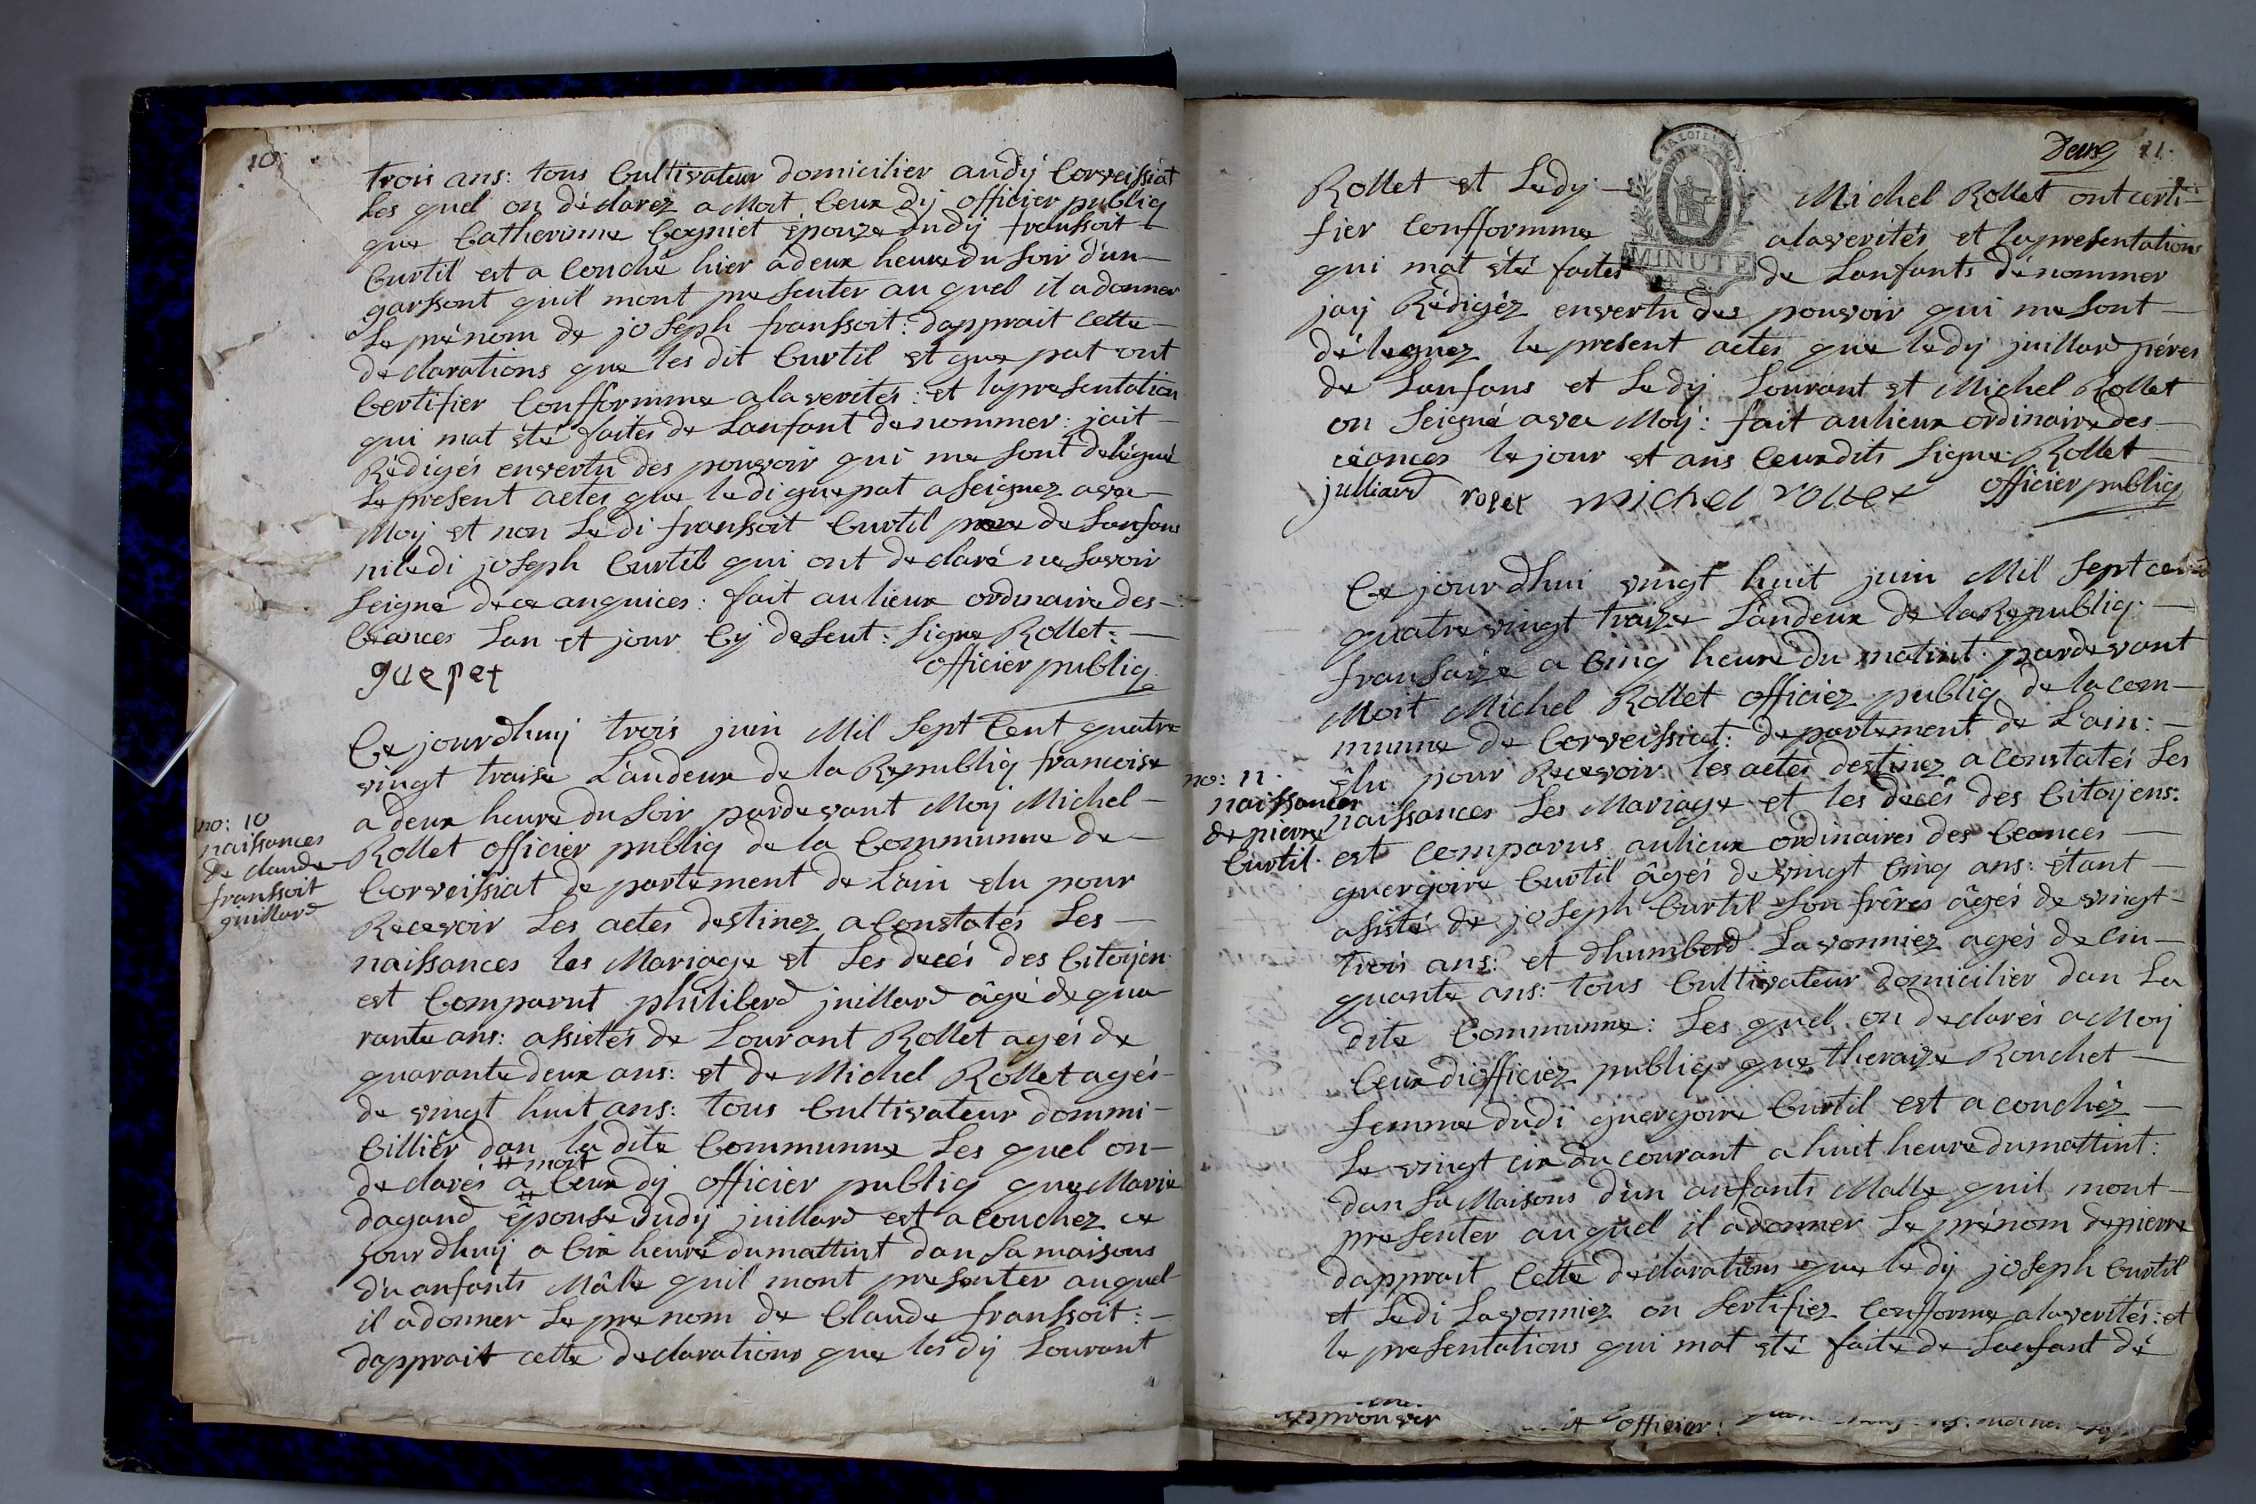 10
trois ans: tous Cultivateur domicilier audÿ Corveissiat
les quel on déclarez a Moit Ceux dij officier publiq
que Catherinne Cogniet épouze dudij franssoit
Curtil est a Couché hier à deux heure du soir d'un
garssont qu'il mont presenter au quel il a donner
Le prénom de joseph franssoit: dapprait cette
declarations que les dit Curtil et guepat ont
Certifier Confformme a la verités: et lapresentation
qui mat été faites de Lanfant denommer: jait
Rédigés envertu des pouvoir qui me sont délégué
Le present actes que ledi guepat a seignez avec
Moij et non Ledi franssoit Curtil pere de Lanfans
ni ledi joseph Curtil qui ont declaré ne savoir
seigné de ce anquices: fait au lieux ordinaire des
Ceances Lan et jour Cij desent: signe Rollet:
guepet officier publiq
no: 10
naissances
de claude
franssoit
guillard
Ce jourdhuij trois juin Mil sept Cent quatre
vingt traise L'andeux de la Republiq francoise
a deux heure du soir pardevant Moij Michel
Rollet officier publiq de la Communne de
Corveissiat departement de L'ain elu pour
Recevoir Les actes destinez a Constatés Les
naissances les Mariage et Les decés des Citoÿen
est Comparut philiberd juillard âgé de qua
rante ans: assistés de Lourant Rollet agés de
quarante deux ans: et de Michel Rollet agés
de vingt huit ans: tous Cultivateur dommi-
Cillier dan la dite Communne Les quel on
# moit
declarés a Ceux dij officier publiq que Marie
dagand épouse dudij juillard est a couchez ce
jourdhuij a Cix heure dumattint dan sa maisons
d'un anfants Mâle qu'il mont presenter auquel
il a donner Le prenom de Claude franssoit:
dapprait cette declarations que les dij Lourant
Deux 11.
TIMBRE
MINUTE
Rollet et Ledij Michel Rollet ont certi-
fier Confformme a la verités et Lapresentations
qui mat été faites de Lanfants dénommer
jaij Rédigéz envertu des pouvoir qui me sont
déleguez le present actes que ledij juillard péres
de Lanfans et Ledij Lourant et Michel Rollet
on seigné avec Moij: fait au lieux ordinaire des
céances le jour et ans Ceuxdits signe Rollet
julliard rolet michel rollet officier publiq
no: 11
naissances
de pierre
Curtil.
Ce jourdhui vingt huit juin Mil sept cent
quatre vingt traize L'andeux de la Republiq
fransaize a Cinq heure du matint pardevant
Moit Michel Rollet officiez publiq de la com-
munne de Corveissiat: departement de L'ain:
élu pour Recevoir les actes destinez a Constatés Les
naissances Les Mariage et les decés des Citoÿens:
est comparus au lieux ordinaires des Ceances
guergoire Curtil âgés de vingt Cinq ans: étant
asisté de joseph Curtil son frêres âgés de vingt-
trois ans: et dhumberd Lavonniez agés de Cin-
quante ans: tous Cultivateur domicilier dan La
dite Communne: Les quel on declarés a Moij
Ceux di officiez publiq que theraize Ronchet
femme dudi guergoire Curtil est a couchéz
Le vingt cix du courant a huit heure dumattint:
dan sa Maisons d'un anfants Malle qu'il mont
presenter au quel il a donner Le prénom de pierre
dapprait Cette declarations que ledij joseph Curtil
et Ledi Lavonniez on sertifiez Confforme a la verités: et
la presentations qui mat été faite de Lanfant dé
approuver
officier: